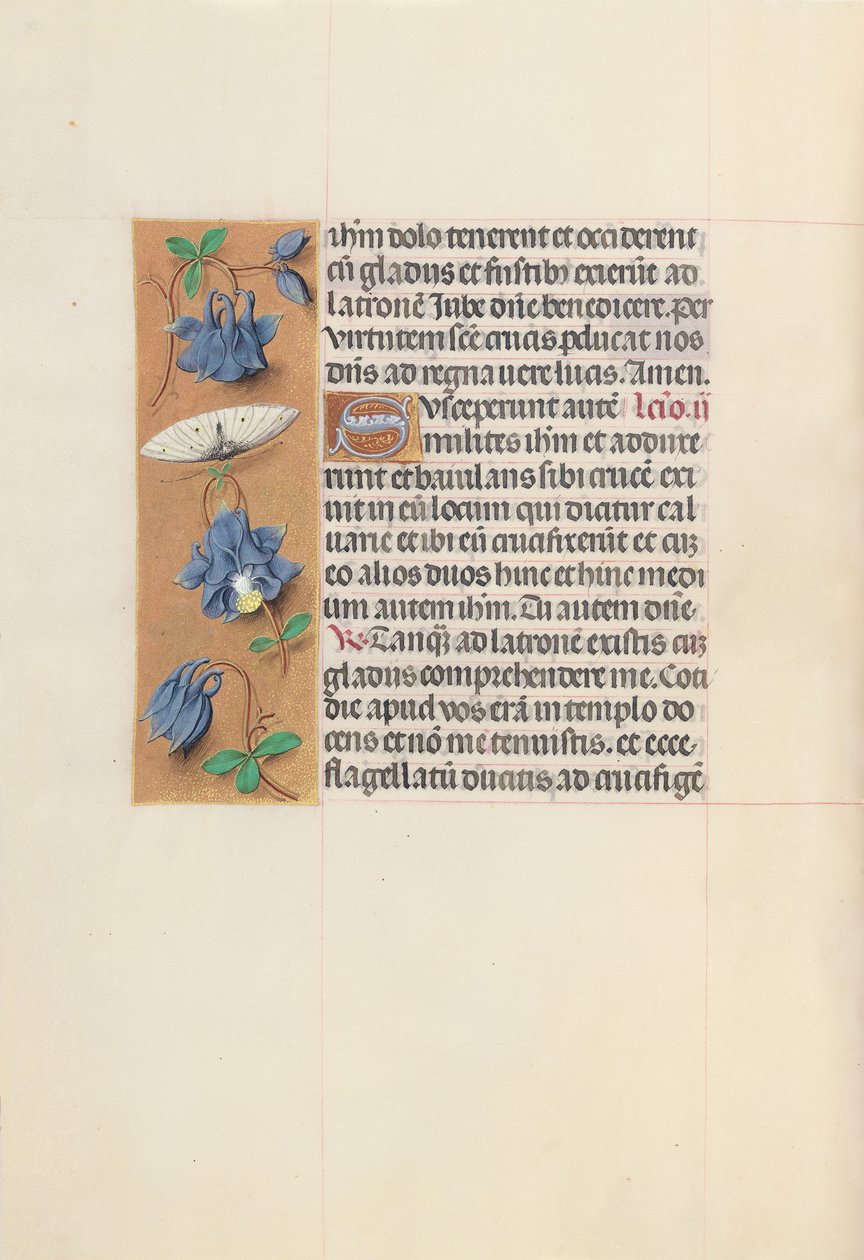 ih̄m dolo tenerent et occiderent
cū gladijs et fustibꝰ exierūt ad
latronē Jube dn̄e benedicere. Per
virtutem sc̄e crucis ꝑducat nos
dn̄s ad regna uere lucis. Amen.
Vsceperunt autē lcīo. ij
S milites ih̄m et adduxe
runt et baiulans sibi crucē exi
uit in eū locum qui dicitur cal
uarie et ibi eū crucifixerūt et cuꝫ
eo alios duos hinc et hinc medi
um autem ih̄m. Tu autem dn̄e.
R. Tanqꝫ ad latronē existis cuꝫ
gladijs comprehendere me. Coti
die apud vos erā in templo do
cens et nō me tenuistis. et ecce
flagellatū ducitis ad crucifigē